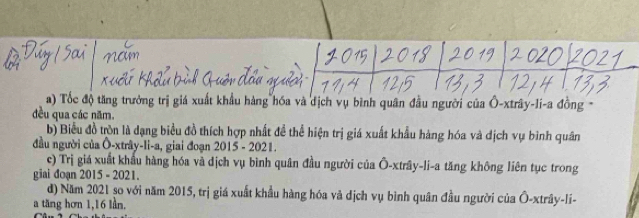 Đúng / Sai | năm | 2015 | 2018 | 2019 | 2020 | 2021
xuất khẩu bình quân đầu người | 11,4 | 12,5 | 13,3 | 12,4 | 13,3
a) Tốc độ tăng trưởng trị giá xuất khẩu hàng hóa và dịch vụ bình quân đầu người của Ô-xtrây-li-a đồng
đều qua các năm.
b) Biểu đồ tròn là dạng biểu đồ thích hợp nhất để thể hiện trị giá xuất khẩu hàng hóa và dịch vụ bình quân
đầu người của Ô-xtrây-li-a, giai đoạn 2015 - 2021.
c) Trị giá xuất khẩu hàng hóa và dịch vụ bình quân đầu người của Ô-xtrây-li-a tăng không liên tục trong
giai đoạn 2015 - 2021.
d) Năm 2021 so với năm 2015, trị giá xuất khẩu hàng hóa và dịch vụ bình quân đầu người của Ô-xtrây-li-
a tăng hơn 1,16 lần.